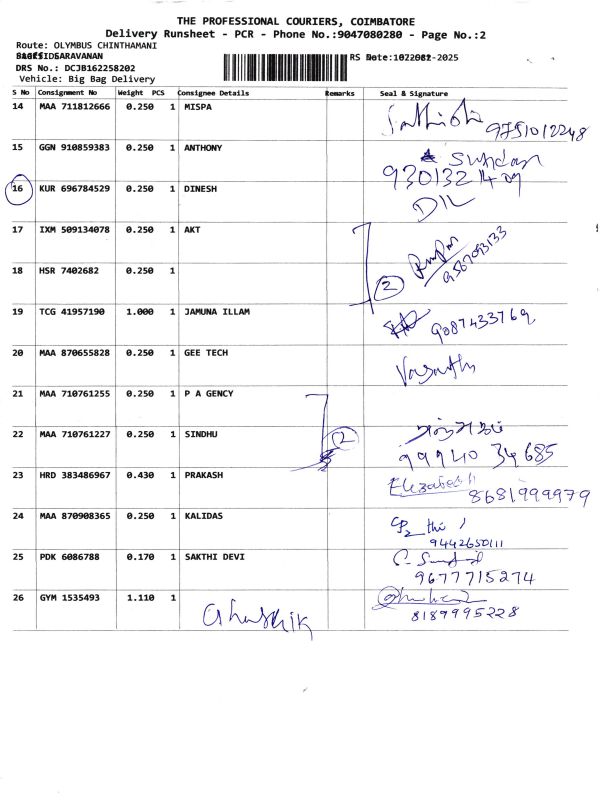 THE PROFESSIONAL COURIERS, COIMBATORE
Delivery Runsheet - PCR - Phone No.:9047080280 - Page No.:2
Route: OLYMBUS CHINTHAMANI
SARAVANAN
RS Date: -2025
DRS No.: DCJB162258202
Vehicle: Big Bag Delivery
S No Consignment No Weight PCS Consignee Details Remarks Seal & Signature
14 MAA 711812666 0.250 1 MISPA
9751012248
15 GGN 910859383 0.250 1 ANTHONY
Sundar
930132
16 KUR 696784529 0.250 1 DINESH
17 IXM 509134078 0.250 1 AKT
2
18 HSR 7402682 0.250 1
19 TCG 41957190 1.000 1 JAMUNA ILLAM
9087433769
20 MAA 870655828 0.250 1 GEE TECH
Vasanth
21 MAA 710761255 0.250 1 P A GENCY
2
22 MAA 710761227 0.250 1 SINDHU
99940 34685
23 HRD 383486967 0.430 1 PRAKASH
Elizabeth
8681999979
24 MAA 870908365 0.250 1 KALIDAS
9442650111
25 PDK 6086788 0.170 1 SAKTHI DEVI
9677715274
26 GYM 1535493 1.110 1
8189995228